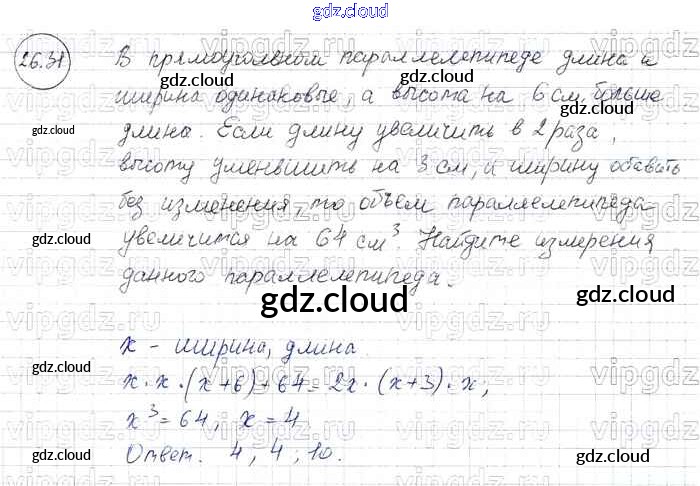 gdz.cloud
26.31 В прямоугольном параллелепипеде длина и
ширина одинаковые, а высота на 6 см больше
длина. Если длину увеличить в 2 раза,
высоту уменьшить на 3 см, и ширину оставить
без изменения, то объем параллелепипеда
увеличится на 64 см³. Найдите измерения
данного параллелепипеда.
gdz.cloud
x - ширина, длина.
x·x·(x+6)+64=2x·(x+3)·x;
x³=64, x=4.
Ответ. 4, 4, 10.